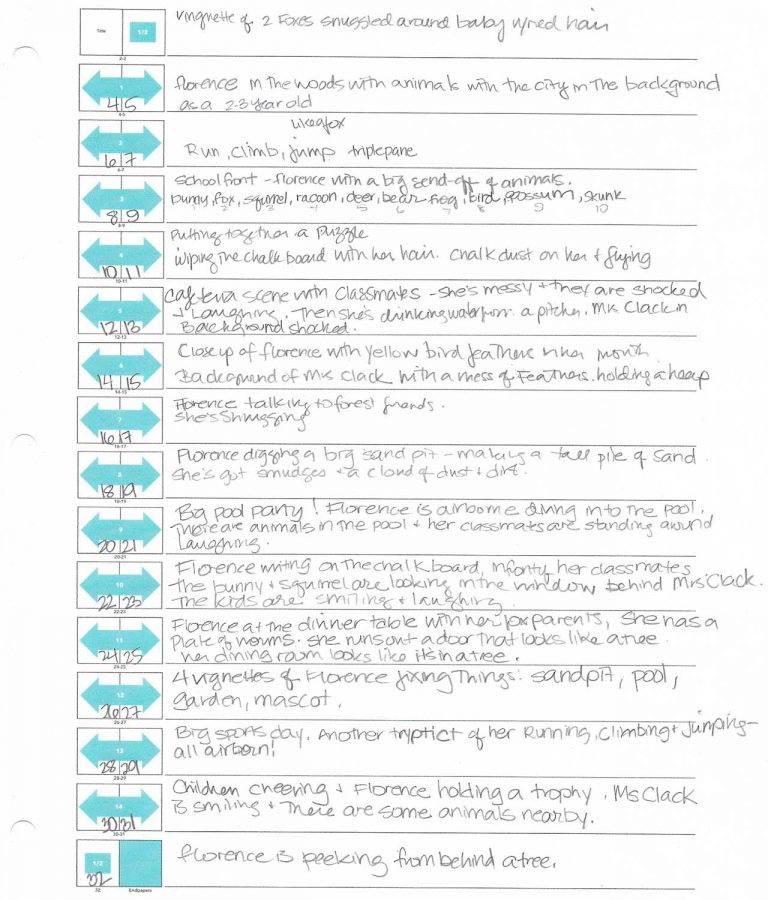 Title 1/2
2-3
Vingnette of 2 Foxes snuggled around baby w/red hair
1
4/5
4-5
florence in the woods with animals with the city in the background
as a 2-3 year old
2
6/7
6-7
like a fox
Run, climb, jump triplepane
3
8/9
8-9
School front - florence with a big send-off of animals.
bunny, fox, squirrel, racoon, deer, bear frog, bird, possum, skunk
1 2 3 4 5 6 7 8 9 10
4
10/11
10-11
Putting together a puzzle
wiping the chalk board with her hair. Chalk dust on her + flying
5
12/13
12-13
Cafeteria scene with Classmates - she's messy + they are shocked
+ Laughing. Then she's drinking water from a pitcher. Mrs Clack in
Background shocked.
6
14/15
14-15
Close up of florence with yellow bird feathers in her mouth.
Background of Mrs Clack with a mess of Feathers. holding a heap
7
16/17
16-17
Florence talking to forest friends.
She's Shrugging
8
18/19
18-19
Florence digging a big sand pit - making a tall pile of sand.
She's got smudges + a cloud of dust + dirt.
9
20/21
20-21
Big pool party! Florence is airborne diving into the pool.
There are animals in the pool + her classmats are standing around
Laughing.
10
22/23
22-23
Florence writing on the chalk board, in front, her classmates
The bunny + squirrel are looking in the window behind Mrs Clack.
The kids are smiling + laughing
11
24/25
24-25
Florence at the dinner table with her fox parents, She has a
Plate of worms. she runs out a door that looks like a tree.
her dining room looks like its in a tree.
12
26/27
26-27
4 vignettes of Florence fixing Things: sandpit, pool,
garden, mascot.
13
28/29
28-29
Big sports day. Another tryptict of her Running, Climbing + Jumping -
all airborn!
14
30/31
30-31
Children cheering + Florence holding a trophy. Ms Clack
is smiling + There are some animals nearby.
1/2
32
32 Endpapers
florence is peeking from behind a tree.